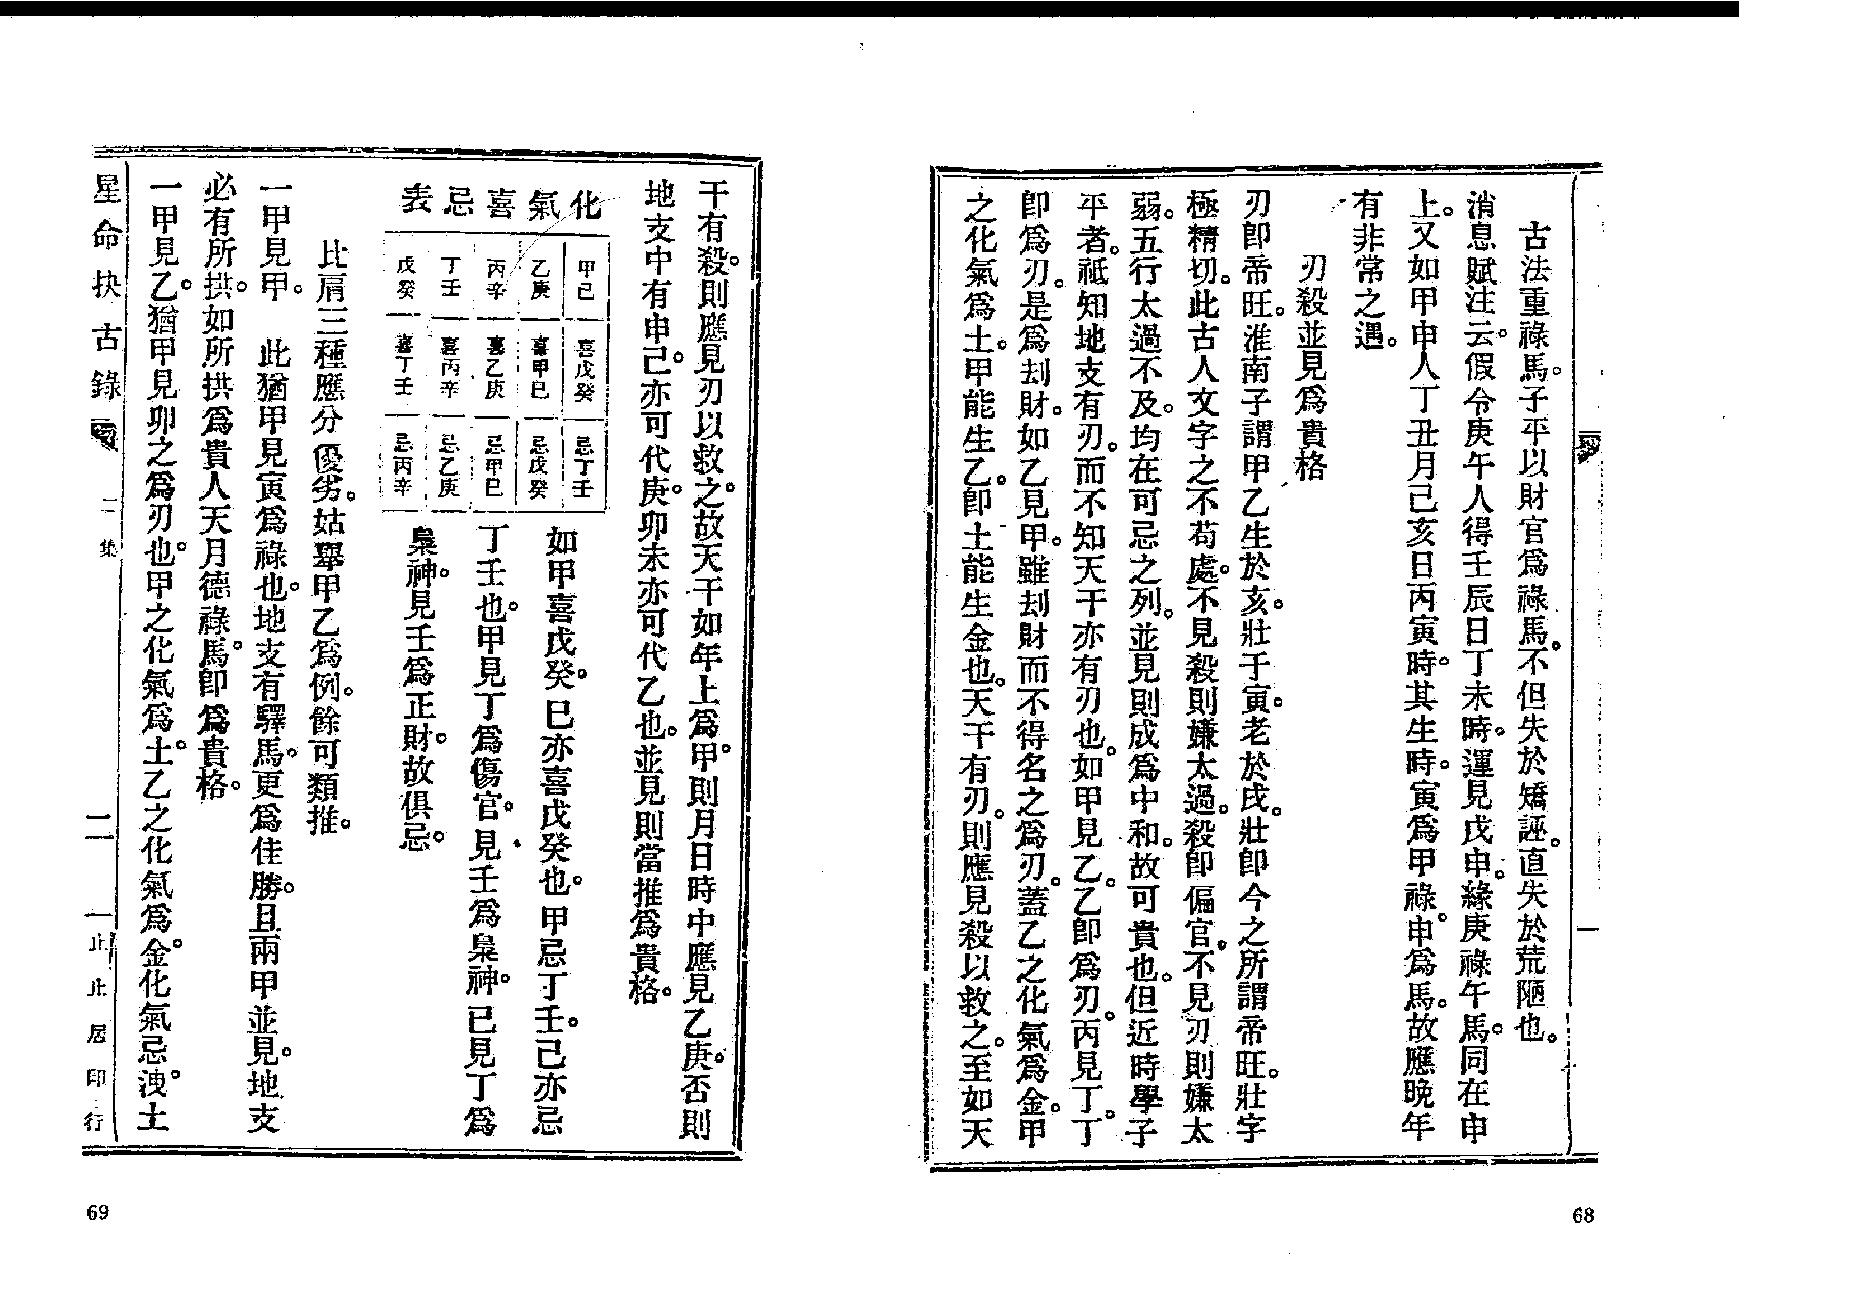 古法重祿馬。子平以財官爲祿馬。不但失於矯誣。直失於荒陋也。
消息賦注云。假令庚午人得壬辰日丁未時。運見戊申。緣庚祿午馬。同在申
上。又如甲申人丁丑月己亥日丙寅時。其生時。寅爲甲祿。申爲馬。故應晚年
有非常之遇。
刃殺並見爲貴格
刃卽帝旺。淮南子謂甲乙生於亥。壯于寅。老於戌。壯卽今之所謂帝旺。壯字
極精切。此古人文字之不苟處。不見殺則嫌太過。殺卽偏官。不見刃則嫌太
弱。五行太過不及。均在可忌之列。並見則成爲中和。故可貴也。但近時學子
平者。祗知地支有刃。而不知天干亦有刃也。如甲見乙。乙卽爲刃。丙見丁。丁
卽爲刃。是爲刦財。如乙見甲。雖刦財而不得名之爲刃。蓋乙之化氣爲金。甲
之化氣爲土。甲能生乙。卽土能生金也。天干有刃。則應見殺以救之。至如天
68
干有殺。則應見刃以救之。故天干如年上爲甲。則月日時中應見乙庚。否則
地支中有申己。亦可代庚。卯未亦可代乙也。並見則當推爲貴格。
化氣喜忌表
甲己 乙庚 丙辛 丁壬 戊癸
喜戊癸 喜甲巳 喜乙庚 喜丙辛 喜丁壬
忌丁壬 忌戊癸 忌甲巳 忌乙庚 忌丙辛
如甲喜戊癸。巳亦喜戊癸也。甲忌丁壬。己亦忌
丁壬也。甲見丁爲傷官。見壬爲梟神。已見丁爲
梟神。見壬爲正財。故俱忌。
比肩三種應分優劣。姑舉甲乙爲例。餘可類推。
一甲見甲。 此猶甲見寅爲祿也。地支有驛馬。更爲佳勝。且兩甲並見。地支
必有所拱。如所拱爲貴人天月德祿馬。卽爲貴格。
一甲見乙。猶甲見卯之爲刃也。甲之化氣爲土。乙之化氣爲金。化氣忌洩。土
星命抉古錄 二集 二一 止止居印行
69